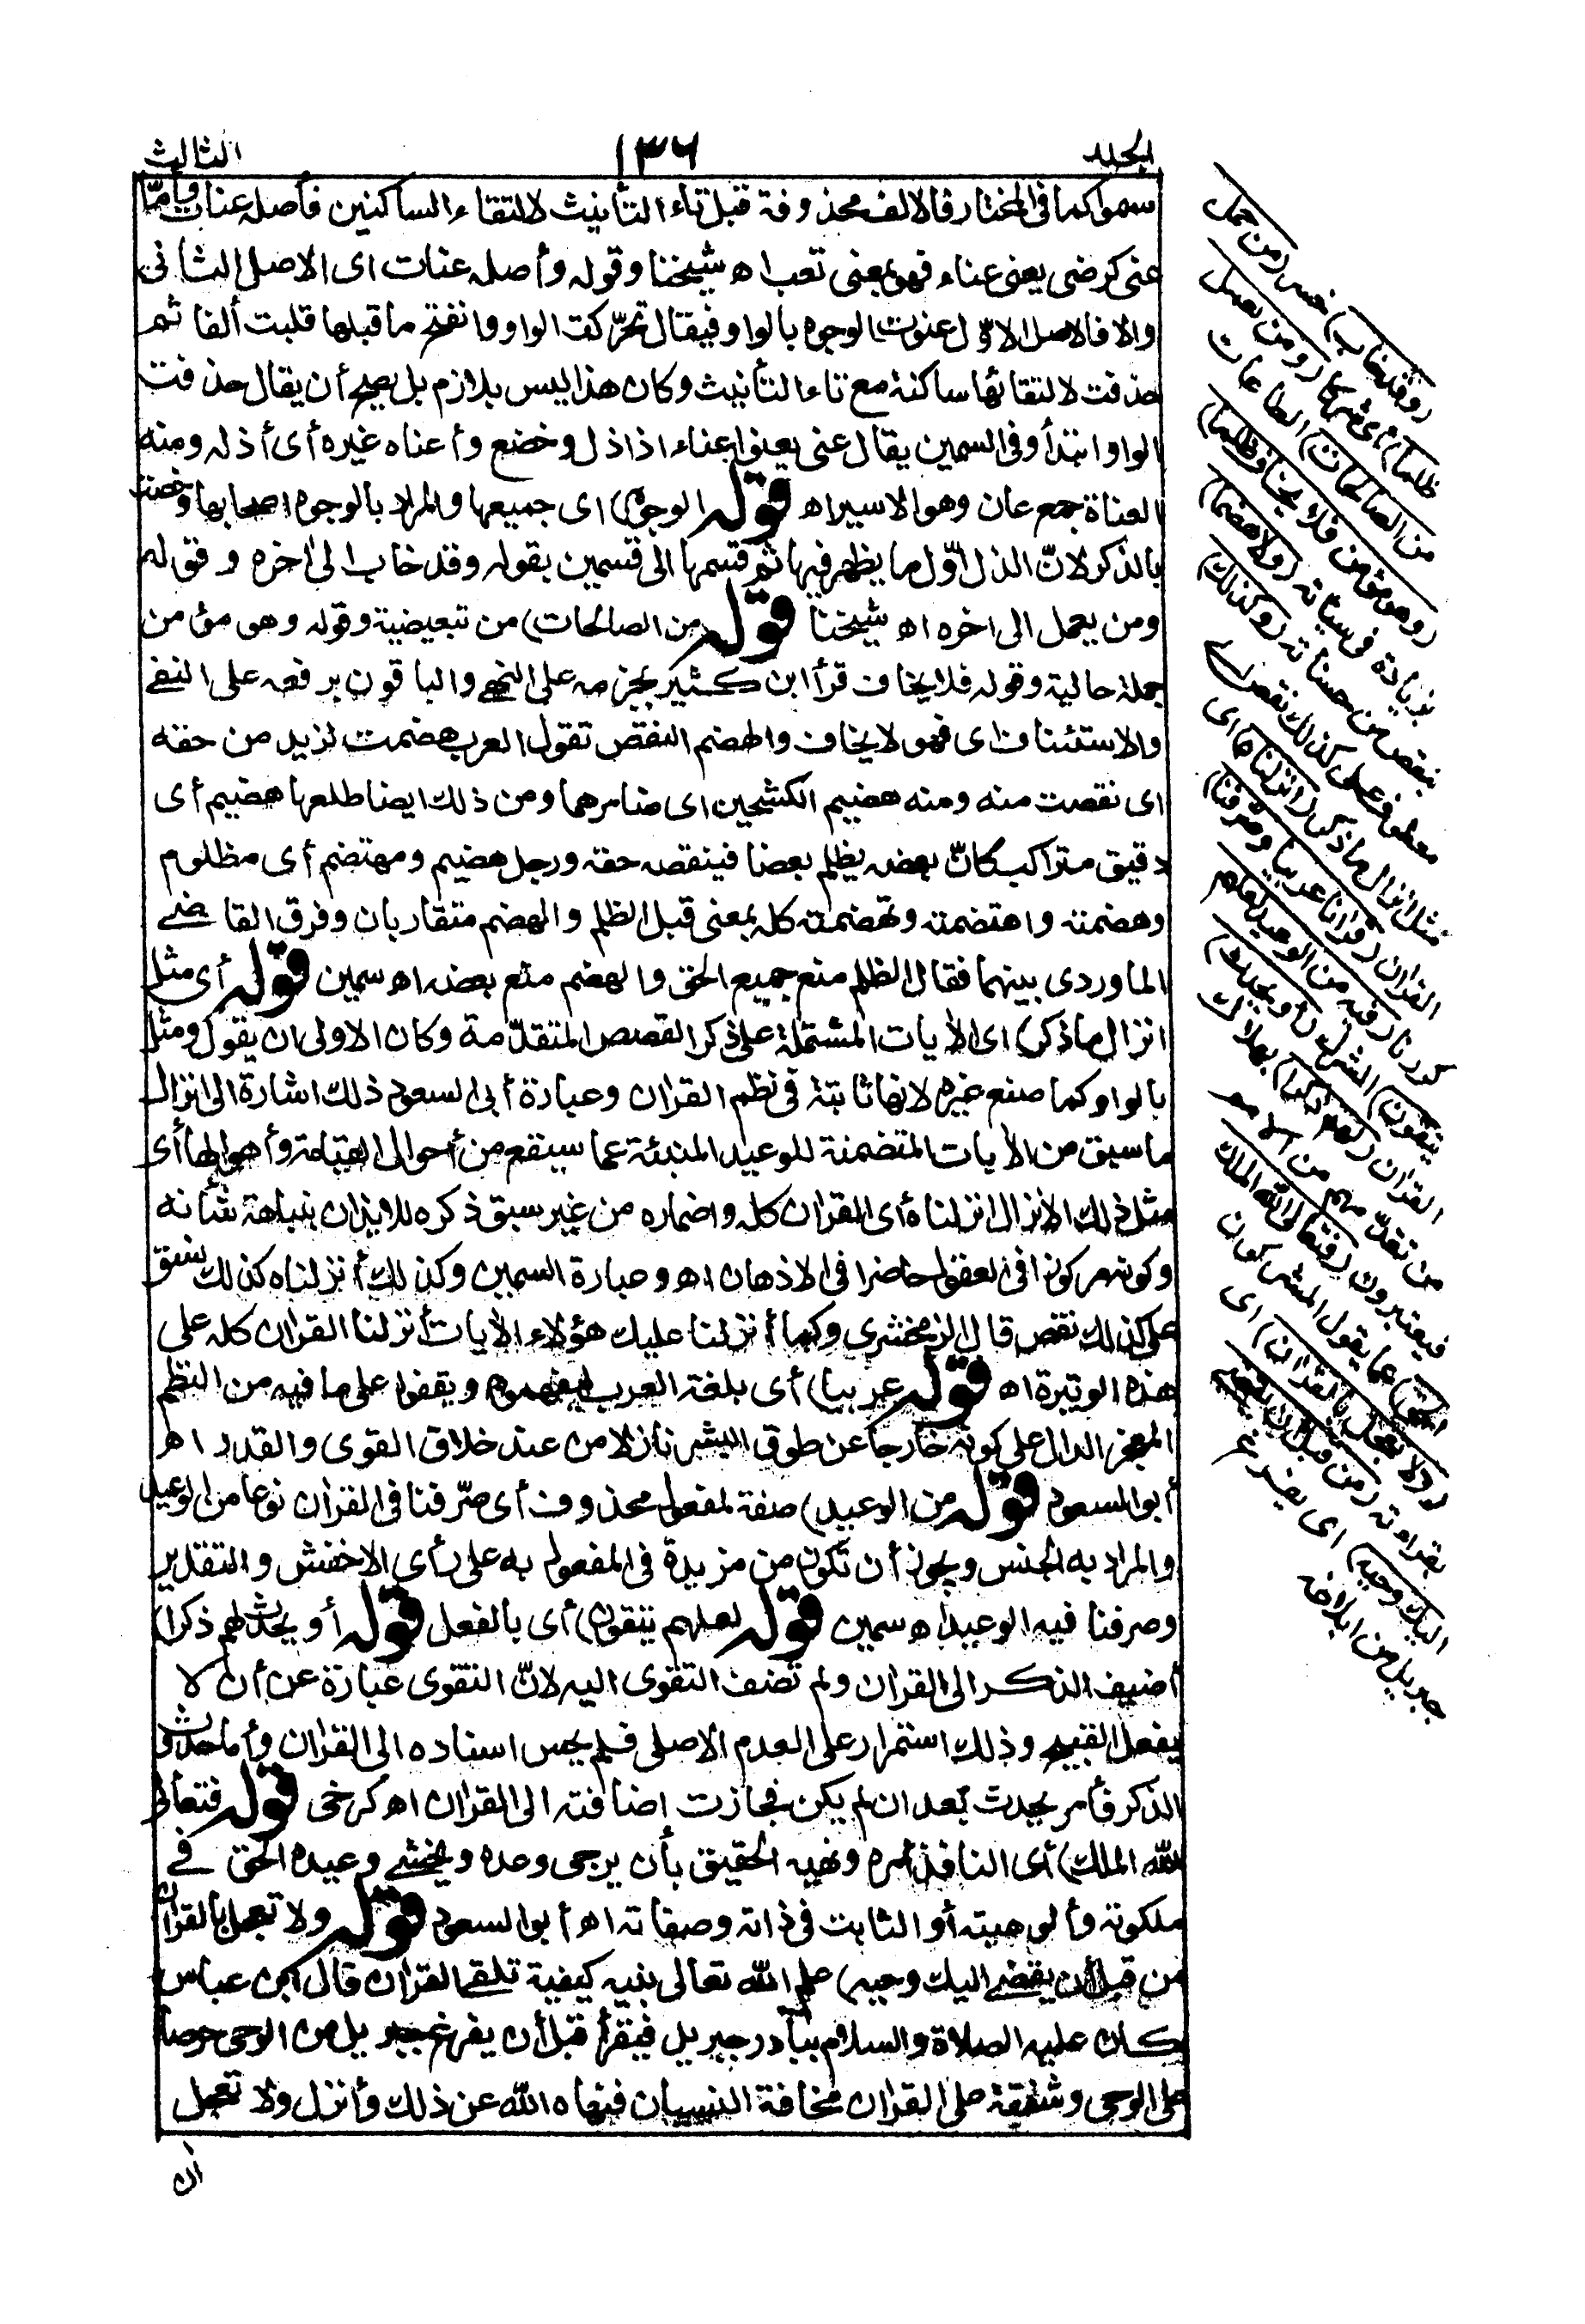 الجلد
١٣٦
الثالث
سموا كما فى المختار فالالف محذوفة قبل تاء التأنيث لالتقاء الساكنين فأصله عنات وأمّا
عنى كرضى يعنى عناء فهو بمعنى تعب اه شيخنا وقوله وأصله عنات اى الاصل الثانى
والا فالاصل الاوّل عنوت الوجوه بالواو فيقال تحرّكت الواو وانفتح ما قبلها قلبت ألفا ثم
حذفت لالتقائها ساكنة مع تاء التأنيث وكان هذا ليس بلازم بل يصح أن يقال حذفت
الواو ابتدأ وفى السمين يقال عنى يعنو عناء اذا ذل وخضع وأعناه غيره أى أذله ومنه
العناة جمع عان وهو الاسير اه قوله الوجوه) اى جميعها والمراد بالوجوه اصحابها وخصت
بالذكر لانّ الذل اوّل ما يظهر فيها ثم قسمها الى قسمين بقوله وقد خاب الى اخره وقوله
ومن يعمل الى اخره اه شيخنا قوله من الصالحات) من تبعيضية وقوله وهو مؤمن
جملة حالية وقوله فلا يخاف قرأ ابن كثير بجزمه على النهى والباقون برفعه على النفے
والاستئناف اى فهو لا يخاف والهضم النقص تقول العرب هضمت لزيد من حقه
اى نقصت منه ومنه هضيم الكشحين اى ضامرهما ومن ذلك ايضا طلعها هضيم أى
دقيق متراكب كانّ بعضه يظلم بعضا فينقصه حقه ورجل هضيم ومهتضم أى مظلوم
وهضمته واهتضمته وتهضمته كله بمعنى قبل الظلم والهضم متقاربان وفرق القاضے
الماوردى بينهما فقال الظلم منع جميع الحق والهضم منع بعضه اه سمين قوله أى مثل
انزال ما ذكر) اى الأيات المشتملة على ذكر القصص المتقدّمة وكان الاولى ان يقول ومثل
بالواو كما صنع غيره لانها ثابتة فى نظم القرأن وعبارة أبى السعود ذلك اشارة الى انزال
ما سبق من الأيات المتضمنة للوعيد المنبئة عما سيقع من أحوال القيامة وأهوالها أى
مثل ذلك الانزال انزلناه أى القرأن كله واضماره من غير سبق ذكره للايذان بنباهة شأنه
وكونه مركوزا فى العقول حاضرا فى الاذهان اه وعبارة السمين وكذلك أنزلناه كذلك نسق
على كذلك نقص قال الزمخشرى وكما أنزلنا عليك هؤلاء الأيات أنزلنا القرأن كله على
هذه الوتيرة اه قوله عربيا) أى بلغة العرب ليفهموه ويقفوا على ما فيه من النظم
المعجز الدال على كونه خارجا عن طوق البشر نازلا من عند خلاق القوى والقدر اه
أبو السعود قوله من الوعيد) صفة لمفعول محذوف أى صرّفنا فى القرأن نوعا من الوعيد
والمراد به الجنس ويجوز أن تكون من مزيدة فى المفعول به على رأى الاخفش والتقدير
وصرفنا فيه الوعيد اه سمين قوله لعلهم يتقون) أى بالفعل قوله أو يحدث لهم ذكرا)
أضيف الذكر الى القرأن ولم تضف التقوى اليه لانّ التقوى عبارة عن أن لا
يفعل القبيح وذلك استمرار على العدم الاصلى فلم يحس اسناده الى القرأن وأما حدوث
الذكر فأمر يحدث بعد ان لم يكن فجازت اضافته الى القرأن اه كرخى قوله فتعالى
الله الملك) أى النافذ أمره ونهيه الحقيق بأن يرجى وعده ويخشے وعيده الحق فے
ملكوته وألوهيته أو الثابت فى ذاته وصفاته اه أبو السعود قوله ولا تعجل بالقرأن
من قبل أن يقضے اليك وحيه) علم الله تعالى نبيه كيفية تلقے القرأن قال ابن عباس
كان عليه الصلاة والسلام يبادر جبريل فيقرأ قبل أن يفرغ جبريل من الوحى حرصا
على الوحى وشفقة على القرأن مخافة النسيان فنهاه الله عن ذلك وأنزل ولا تعجل
ان
(وقد خاب) خسر (من حمل
ظلما) أى شركا (ومن يعمل
من الصالحات) الطاعات
(وهو مؤمن فلا يخاف ظلما)
بزيادة فى سيأته (ولا هضما)
بنقص من حسناته (وكذلك)
معطوف على كذلك نقص اى
مثل انزال ما ذكر (انزلناه) اى
القرأن (قرأنا عربيا وصرّفنا)
كررنا (فيه من الوعيد لعلهم
يتقون) الشرك (أو يحدث)
القرأن (لهم ذكرا) بهلاك
من تقدّمهم من الامم
فيعتبرون (فتعالى الله الملك
الحق) عما يقول المشركون
(ولا تعجل بالقرأن) اى
بقراءته (من قبل أن يقضى
اليك وحيه) اى يفرغ
جبريل من ابلاغه